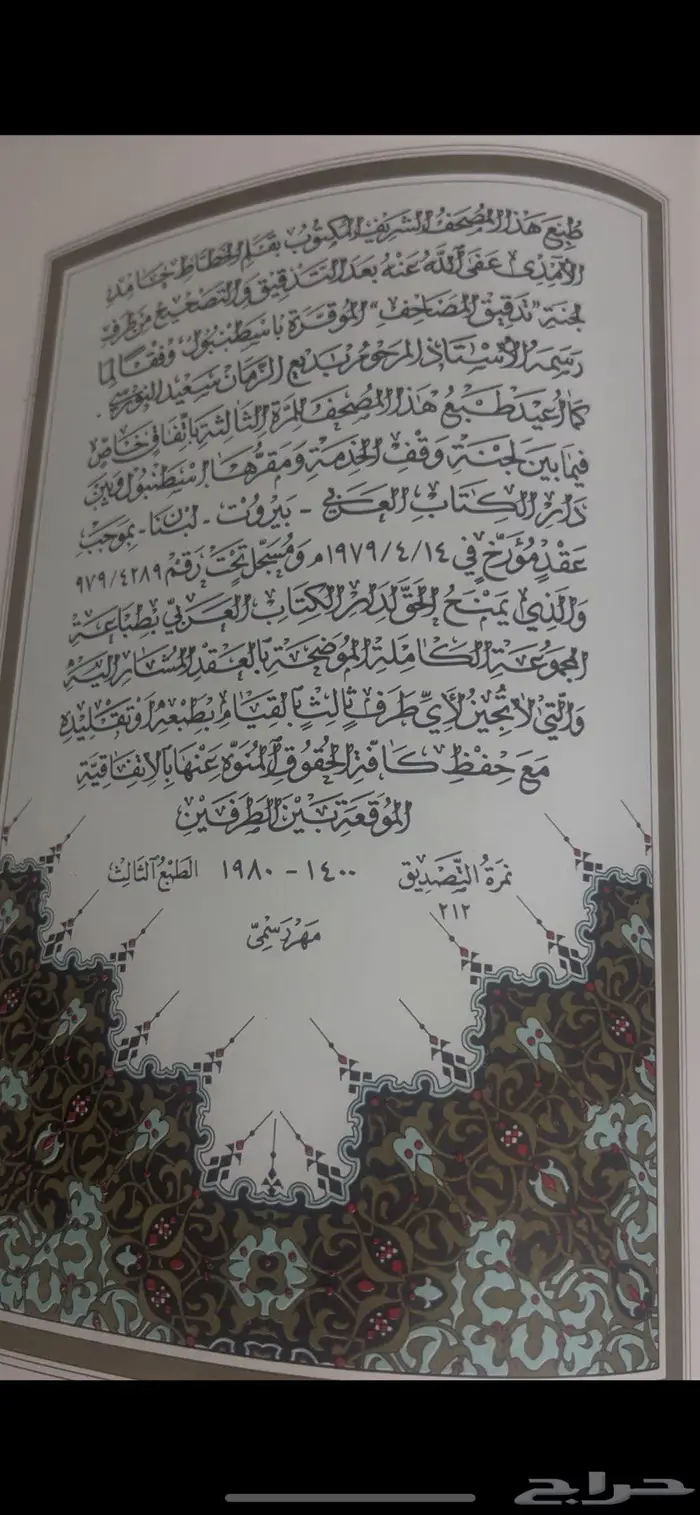 طُبِعَ هَذَا المُصْحَفُ الشَّرِيفُ المَكْتُوبُ بِقَلَمِ الخَطَّاطِ حَامِدِ
الآمِدِى عَفَى اللّٰهُ عَنْهُ بَعْدَ التَّدْقِيقِ وَالتَّصْحِيحِ مِنْ طَرَفِ
لجنة "تَدْقِيقِ المَصَاحِفِ" المُوَقَّرَةِ بِاسْطَنْبُولَ، وَفْقًا لِمَا
رَسَمَهُ الأُسْتَاذُ المَرْحُومُ بَدِيعُ الزَّمَانِ سَعِيدُ النُّورسِي.
كَمَا أُعِيدَ طَبْعُ هَذَا المُصْحَفِ لِلْمَرَّةِ الثَّالِثَةِ بِاتِّفَاقٍ خَاصٍّ
فِيمَا بَيْنَ لَجْنَةِ وَقْفِ الخِدْمَةِ وَمَقَرُّهَا إِسْطَنْبُولُ وَبَيْنَ
دَارِ الكِتَابِ العَرَبِي - بَيْرُوت - لُبْنَان - بِمُوجَبِ
عَقْدٍ مُؤَرَّخٍ فِي ١٩٧٩/٤/١٤م وَمُسَجَّلٍ تَحْتَ رَقْمِ ٩٧٩/٤٢٨٩
وَالَّذِي يَمْنَحُ الحَقَّ لِدَارِ الكِتَابِ العَرَبِيِّ بِطِبَاعَةِ
المَجْمُوعَةِ الكَامِلَةِ المُوَضَّحَةِ بِالعَقْدِ المُشَارِ إِلَيْهِ
وَالَّتِي لَا تُجِيزُ لِأَيِّ طَرَفٍ ثَالِثٍ بِالقِيَامِ بِطَبْعِهِ أَوْ تَقْلِيدِهِ
مَعَ حِفْظِ كَافَّةِ الحُقُوقِ المُنَوَّهِ عَنْهَا بِالاتِّفَاقِيَّةِ
المُوَقَّعَةِ بَيْنَ الطَّرَفَيْنِ
نمرَةُ التَّصْدِيقِ ١٤٠٠ - ١٩٨٠ الطَّبْعُ الثَّالِثُ
٢١٢
مهر رَسْمِىّ
حراج